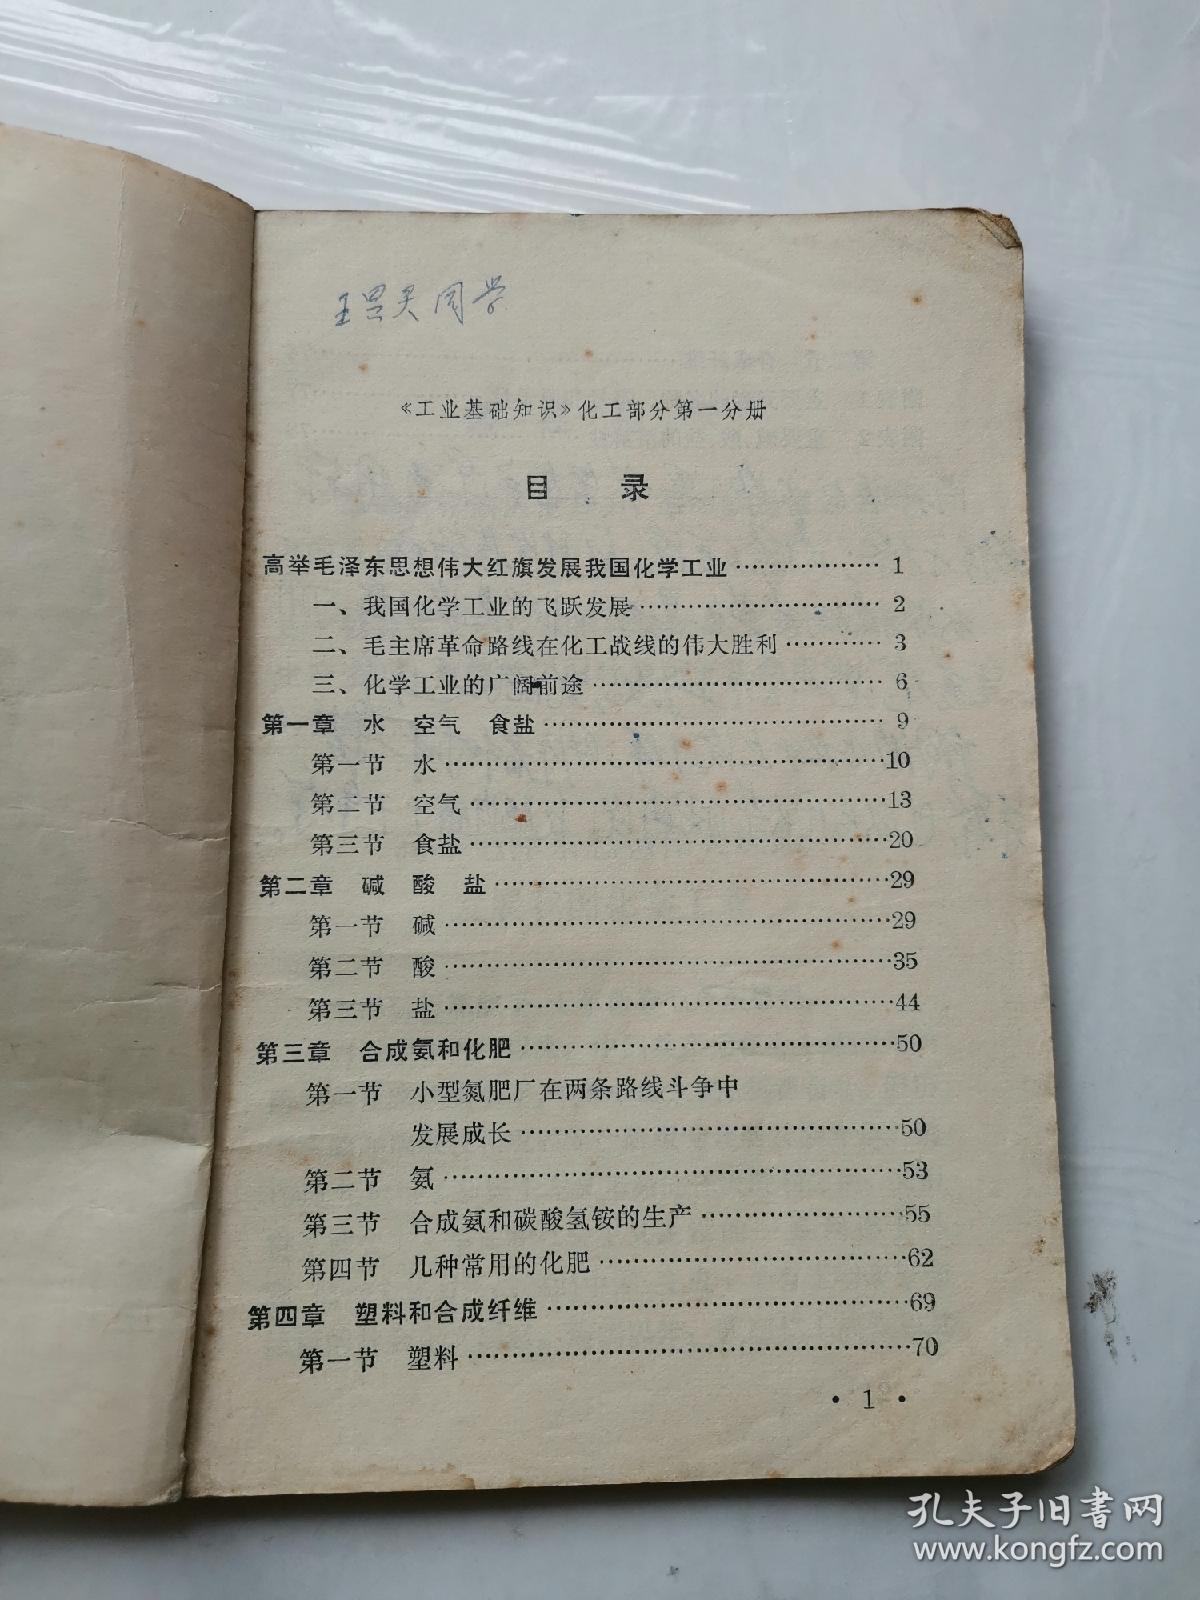 《工业基础知识》化工部分第一分册
目 录
高举毛泽东思想伟大红旗发展我国化学工业………………1
一、我国化学工业的飞跃发展………………2
二、毛主席革命路线在化工战线的伟大胜利………………3
三、化学工业的广阔前途………………6
第一章 水 空气 食盐………………9
第一节 水………………10
第二节 空气………………13
第三节 食盐………………20
第二章 碱 酸 盐………………29
第一节 碱………………29
第二节 酸………………35
第三节 盐………………44
第三章 合成氨和化肥………………50
第一节 小型氮肥厂在两条路线斗争中
发展成长………………50
第二节 氨………………53
第三节 合成氨和碳酸氢铵的生产………………55
第四节 几种常用的化肥………………62
第四章 塑料和合成纤维………………69
第一节 塑料………………70
• 1 •
孔夫子旧书网
www.kongfz.com